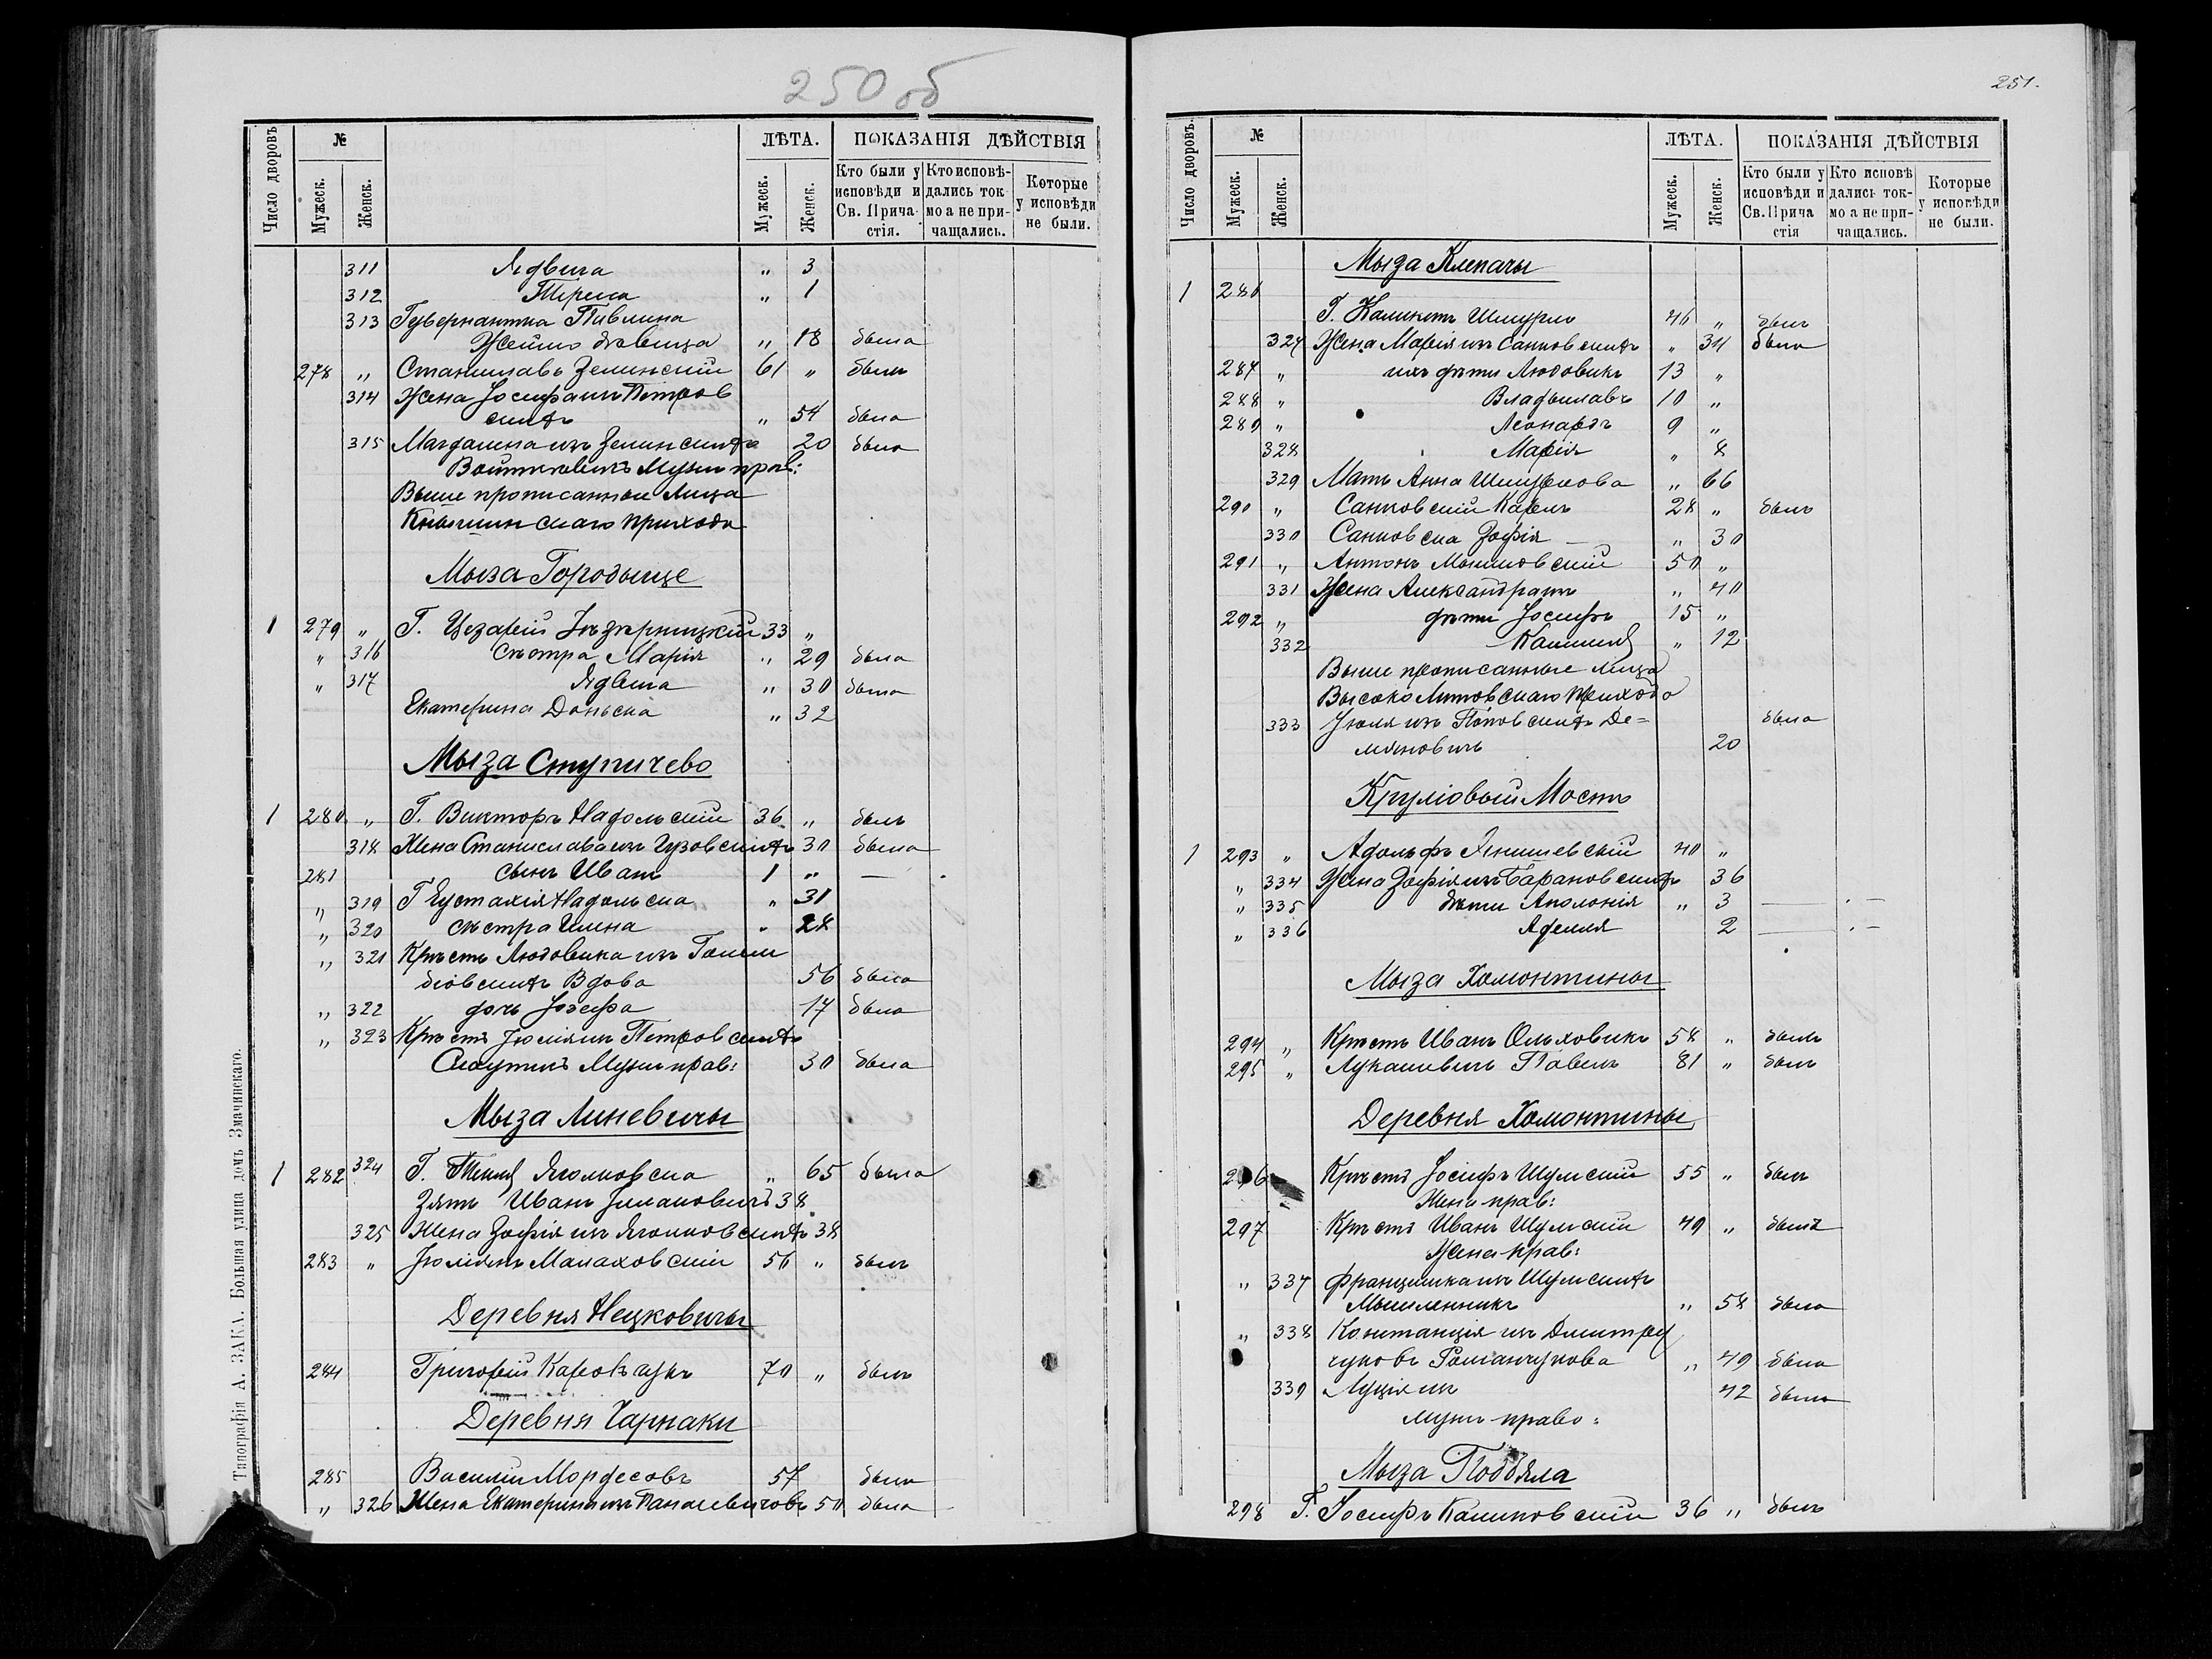 250 об
Число дворовъ
№
Мужеск.
Женск.
ЛѢТА.
Мужеск.
Женск.
ПОКАЗАНІЯ ДѢЙСТВІЯ
Кто были у исповѣди и Св. Прича-стія.
Кто исповѣ-дались ток-мо а не при-чащались.
Которые у исповѣди не были.
311 Ядвига " 3
312 Тереса " 1
313 Гувернантка Павлина
дѣвица " 18 была
278 " Станиславъ Зелинскій 61 " былъ
314 Жена Іосифа изъ Петров
скихъ " 54 была
315 Магдалина изъ Зелинскихъ 20 была
Войткевичъ Мужъ прав:
Выше прописанные Лица
Кнышинскаго прихода
Мыза Городыще
1 279 " Г. Цезарій 33 "
" 316 сестра Марія " 29 была
" 317 Ядвига " 30 была
Екатерина Доньска " 32
Мыза Ступичево
1 280 " Г. Викторъ Надольскій 36 " былъ
318 Жена Станислава изъ Гузовскихъ 30 была
281 сынъ Иванъ 1 " —
" 319 Г Еустахія Надольска " 31
" 320 сестра Илена " 28
" 321 Крест. Людовика изъ Голем
біовскихъ Вдова 56 была
" 322 дочь Іозефа 17 была
" 323 Крест. Юлія изъ Петровскихъ
Мужъ прав: 30 была
Мыза Линевичы
1 282 324 Г. Текля Яголковска " 65 была
Зять Иванъ 38
325 Жена Зофія изъ Яголковскихъ 38
283 " Юліянъ Малаховскій 50 " былъ
Деревня Нецковичы
284 Григорій 70 " былъ
Деревня Чарнаки
285 Василій Мордесовъ 57 былъ
" 326 Жена Екатерина изъ Панасевичовъ 50 была
Типографія А. ЗАКА. Большая улица домъ Змачинскаго.
251.
Число дворовъ.
№
Мужеск.
Женск.
ЛѢТА.
Мужеск.
Женск.
ПОКАЗАНІЯ ДѢЙСТВІЯ
Кто были у исповѣди и Св. Прича стія
Кто исповѣ дались ток-мо а не при-чащались.
Которые у исповѣди не были.
Мыза Клепачы
1 286
Г. Каликстъ Шмурло 46 " былъ
327 Жена Марія изъ Санковскихъ " 34 была
287 " ихъ дети Людовикъ 13 "
288 " Владыславъ 10 "
289 " Леонардъ 9 "
328 Марія " 8
329 Мать Анна Шмуркова " 66
290 " Санковскій Кароль 28 " былъ
330 Санковска Зофія — " 30
291 " Антонъ 50 "
331 Жена Александра изъ " 40
292 " дети Іосифъ 15 "
332 Камиля " 12
Выше прописанные лица
Высоко Литовскаго прихода
333 Юлія изъ Поповскихъ Де= была
мяновичъ 20
Круліовый Мостъ
1 293 " Адольфъ Янишевскій 40 "
" 334 Жена Зофія изъ Барановскихъ 36
" 335 дѣти Аполонія " 3 —
" 336 Аделля 2 —
Мыза Хомонтины
294 " Крестъ Иванъ Ольховикъ 58 " былъ
295 " Лукашевичъ Павелъ 81 " былъ
Деревня Хомонтины
296 Крестъ Іосифъ Шумскій 55 " былъ
Жена прав:
297 Крестъ Иванъ Шумскій 49 " былъ
Жена прав:
" 337 Францишка изъ Шумскихъ
" 58 была
" 338 Констанція изъ Дмитру
чуковъ Романчукова " 49 была
339 Луція изъ 42 была
мужъ право:
Мыза Поддяла
298 Г. Іосифъ Калиновскій 36 " былъ